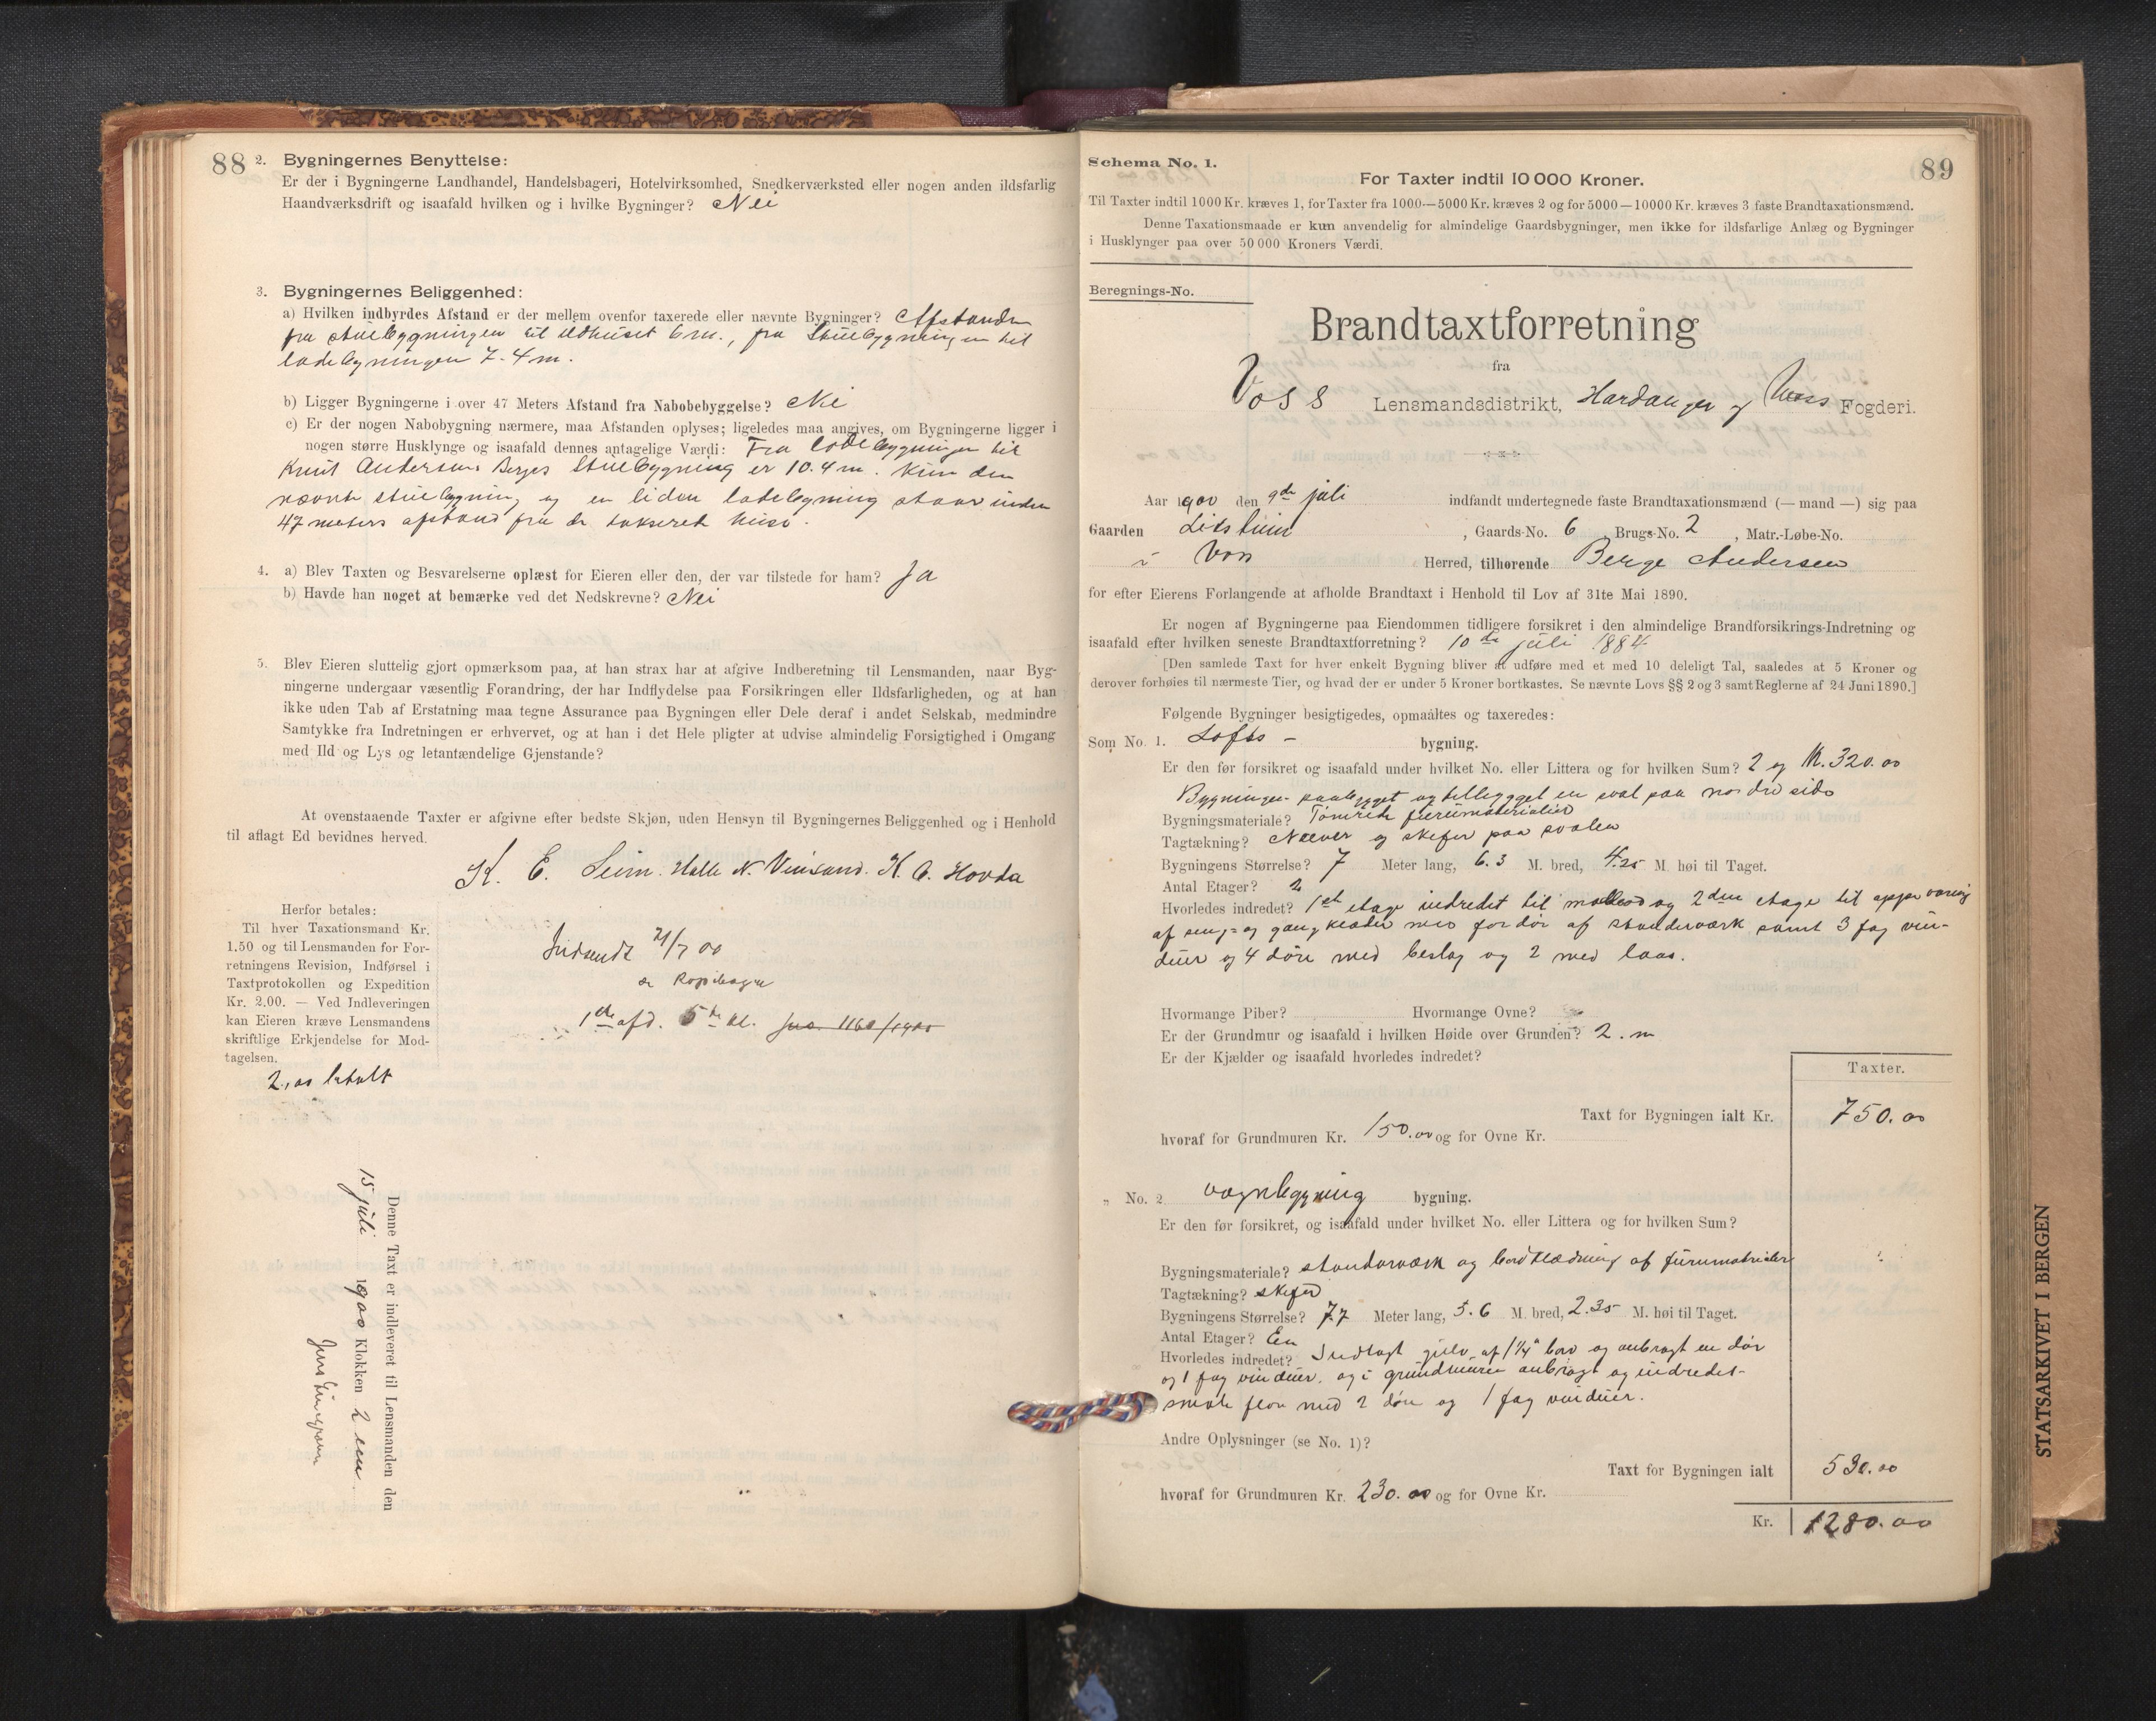 88
2. Bygningernes Benyttelse:
Er der i Bygningerne Landhandel, Handelsbageri, Hotelvirksomhed, Snedkerværksted eller nogen anden ildsfarlig
Haandværksdrift og isaafald hvilken og i hvilke Bygninger? Nei
3. Bygningernes Beliggenhed:
a) Hvilken indbyrdes Afstand er der mellem ovenfor taxerede eller nævnte Bygninger? Afstanden
fra stuebygningen til ildhuset 6 m., fra Stuebygningen til
ladebygningen 7.4 m.
b) Ligger Bygningerne i over 47 Meters Afstand fra Nabobebyggelse? Nei
c) Er der nogen Nabobygning nærmere, maa Afstanden oplyses; ligeledes maa angives, om Bygningerne ligger i
nogen større Husklynge og isaafald dennes antagelige Værdi: Fra ladebygningen til
Knut Andersens Berges Stuebygning er 10.4 m. Kun den
nævnte stuebygning og en liden ladebygning staar inden
47 meters afstand fra de takserede huse.
4. a) Blev Taxten og Besvarelserne oplæst for Eieren eller den, der var tilstede for ham? Ja
b) Havde han noget at bemærke ved det Nedskrevne? Nei
5. Blev Eieren sluttelig gjort opmærksom paa, at han strax har at afgive Indberetning til Lensmanden, naar Byg-
ningerne undergaar væsentlig Forandring, der har Indflydelse paa Forsikringen eller Ildsfarligheden, og at han
ikke uden Tab af Erstatning maa tegne Assurance paa Bygningen eller Dele deraf i andet Selskab, medmindre
Samtykke fra Indretningen er erhvervet, og at han i det Hele pligter at udvise almindelig Forsigtighed i Omgang
med Ild og Lys og letantændelige Gjenstande?
At ovenstaaende Taxter er afgivne efter bedste Skjøn, uden Hensyn til Bygningernes Beliggenhed og i Henhold
til aflagt Ed bevidnes herved.
K. E. Seim. Halle N. Vinsand. K. O. Hovda
Herfor betales:
Til hver Taxationsmand Kr.
1,50 og til Lensmanden for For-
retningens Revision, Indførsel i
Taxtprotokollen og Expedition
Kr. 2.00. — Ved Indleveringen
kan Eieren kræve Lensmandens
skriftlige Erkjendelse for Mod-
tagelsen.
2,00 betalt
Indsendt 21/7 00
1ste afd. 5te kl. 1160/1900
Denne Taxt er indleveret til Lensmanden den
15 juli 1900 Klokken 2 em
Schema No. 1.
89
For Taxter indtil 10 000 Kroner.
Til Taxter indtil 1000 Kr. kræves 1, for Taxter fra 1000—5000 Kr. kræves 2 og for 5000—10000 Kr. kræves 3 faste Brandtaxationsmænd.
Denne Taxationsmaade er kun anvendelig for almindelige Gaardsbygninger, men ikke for ildsfarlige Anlæg og Bygninger
i Husklynger paa over 50 000 Kroners Værdi.
Beregnings-No.
Brandtaxtforretning
fra
Voss Lensmandsdistrikt, Hardanger og Voss Fogderi.
Aar 1900 den 9de juli indfandt undertegnede faste Brandtaxationsmænd (— mand —) sig paa
Gaarden , Gaards-No. 6 , Brugs-No. 2 , Matr.-Løbe-No.
i Voss Herred, tilhørende Berge Andersen
for efter Eierens Forlangende at afholde Brandtaxt i Henhold til Lov af 31te Mai 1890.
Er nogen af Bygningerne paa Eiendommen tidligere forsikret i den almindelige Brandforsikrings-Indretning og
isaafald efter hvilken seneste Brandtaxtforretning? 10de juli 1884
[Den samlede Taxt for hver enkelt Bygning bliver at udføre med et med 10 deleligt Tal, saaledes at 5 Kroner og
derover forhøies til nærmeste Tier, og hvad der er under 5 Kroner bortkastes. Se nævnte Lovs §§ 2 og 3 samt Reglerne af 24 Juni 1890.]
Følgende Bygninger besigtigedes, opmaaltes og taxeredes:
Som No. 1. Lofts - bygning.
Er den før forsikret og isaafald under hvilket No. eller Littera og for hvilken Sum? 2 og K. 320.00
Bygningen paabygget og tilbygget en sval paa nordre side
Bygningsmateriale? Tømrede furumaterialier
Tagtækning? Næver og skifer paa svalen
Bygningens Størrelse? 7 Meter lang, 6.3 M. bred, 4.25 M. høi til Taget.
Antal Etager? 2
Hvorledes indredet? 1st etage indredet til madbod og 2den etage til oppevaring
af seng- og gangklæder med fordør af standerværk samt 3 fag vin-
duer og 4 døre med beslag og 2 med laas.
Hvormange Piber? Hvormange Ovne?
Er der Grundmur og isaafald i hvilken Høide over Grunden? 2. m
Er der Kjælder og isaafald hvorledes indredet?
Taxter.
Taxt for Bygningen ialt Kr. 750.00
hvoraf for Grundmuren Kr. 150.00 og for Ovne Kr.
" No. 2 vognbygning bygning.
Er den før forsikret, og isaafald under hvilket No. eller Littera og for hvilken Sum?
Bygningsmateriale? standerværk og bordklædning af furumaterialer
Tagtækning? skifer
Bygningens Størrelse? 7.7 Meter lang, 5.6 M. bred, 2.35 M. høi til Taget.
Antal Etager? En
Hvorledes indredet? Indlagt gulv af 1¼" bord og anbragt en dør
og 1 fag vinduer, og i grundmuren anbragt og indredet
smale flor med 2 døre og 1 fag vinduer.
Andre Oplysninger (se No. 1)?
Taxt for Bygningen ialt 530.00
hvoraf for Grundmuren Kr. 230.00 og for Ovne Kr.
Kr. 1280.00
STATSARKIVET I BERGEN